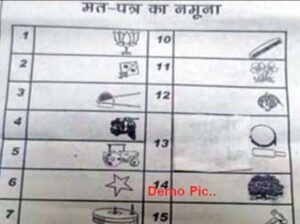 मत-पत्र का नमूना
1 10
2 11
3 12
4
5 13
6 14
Demo Pic..
7 15